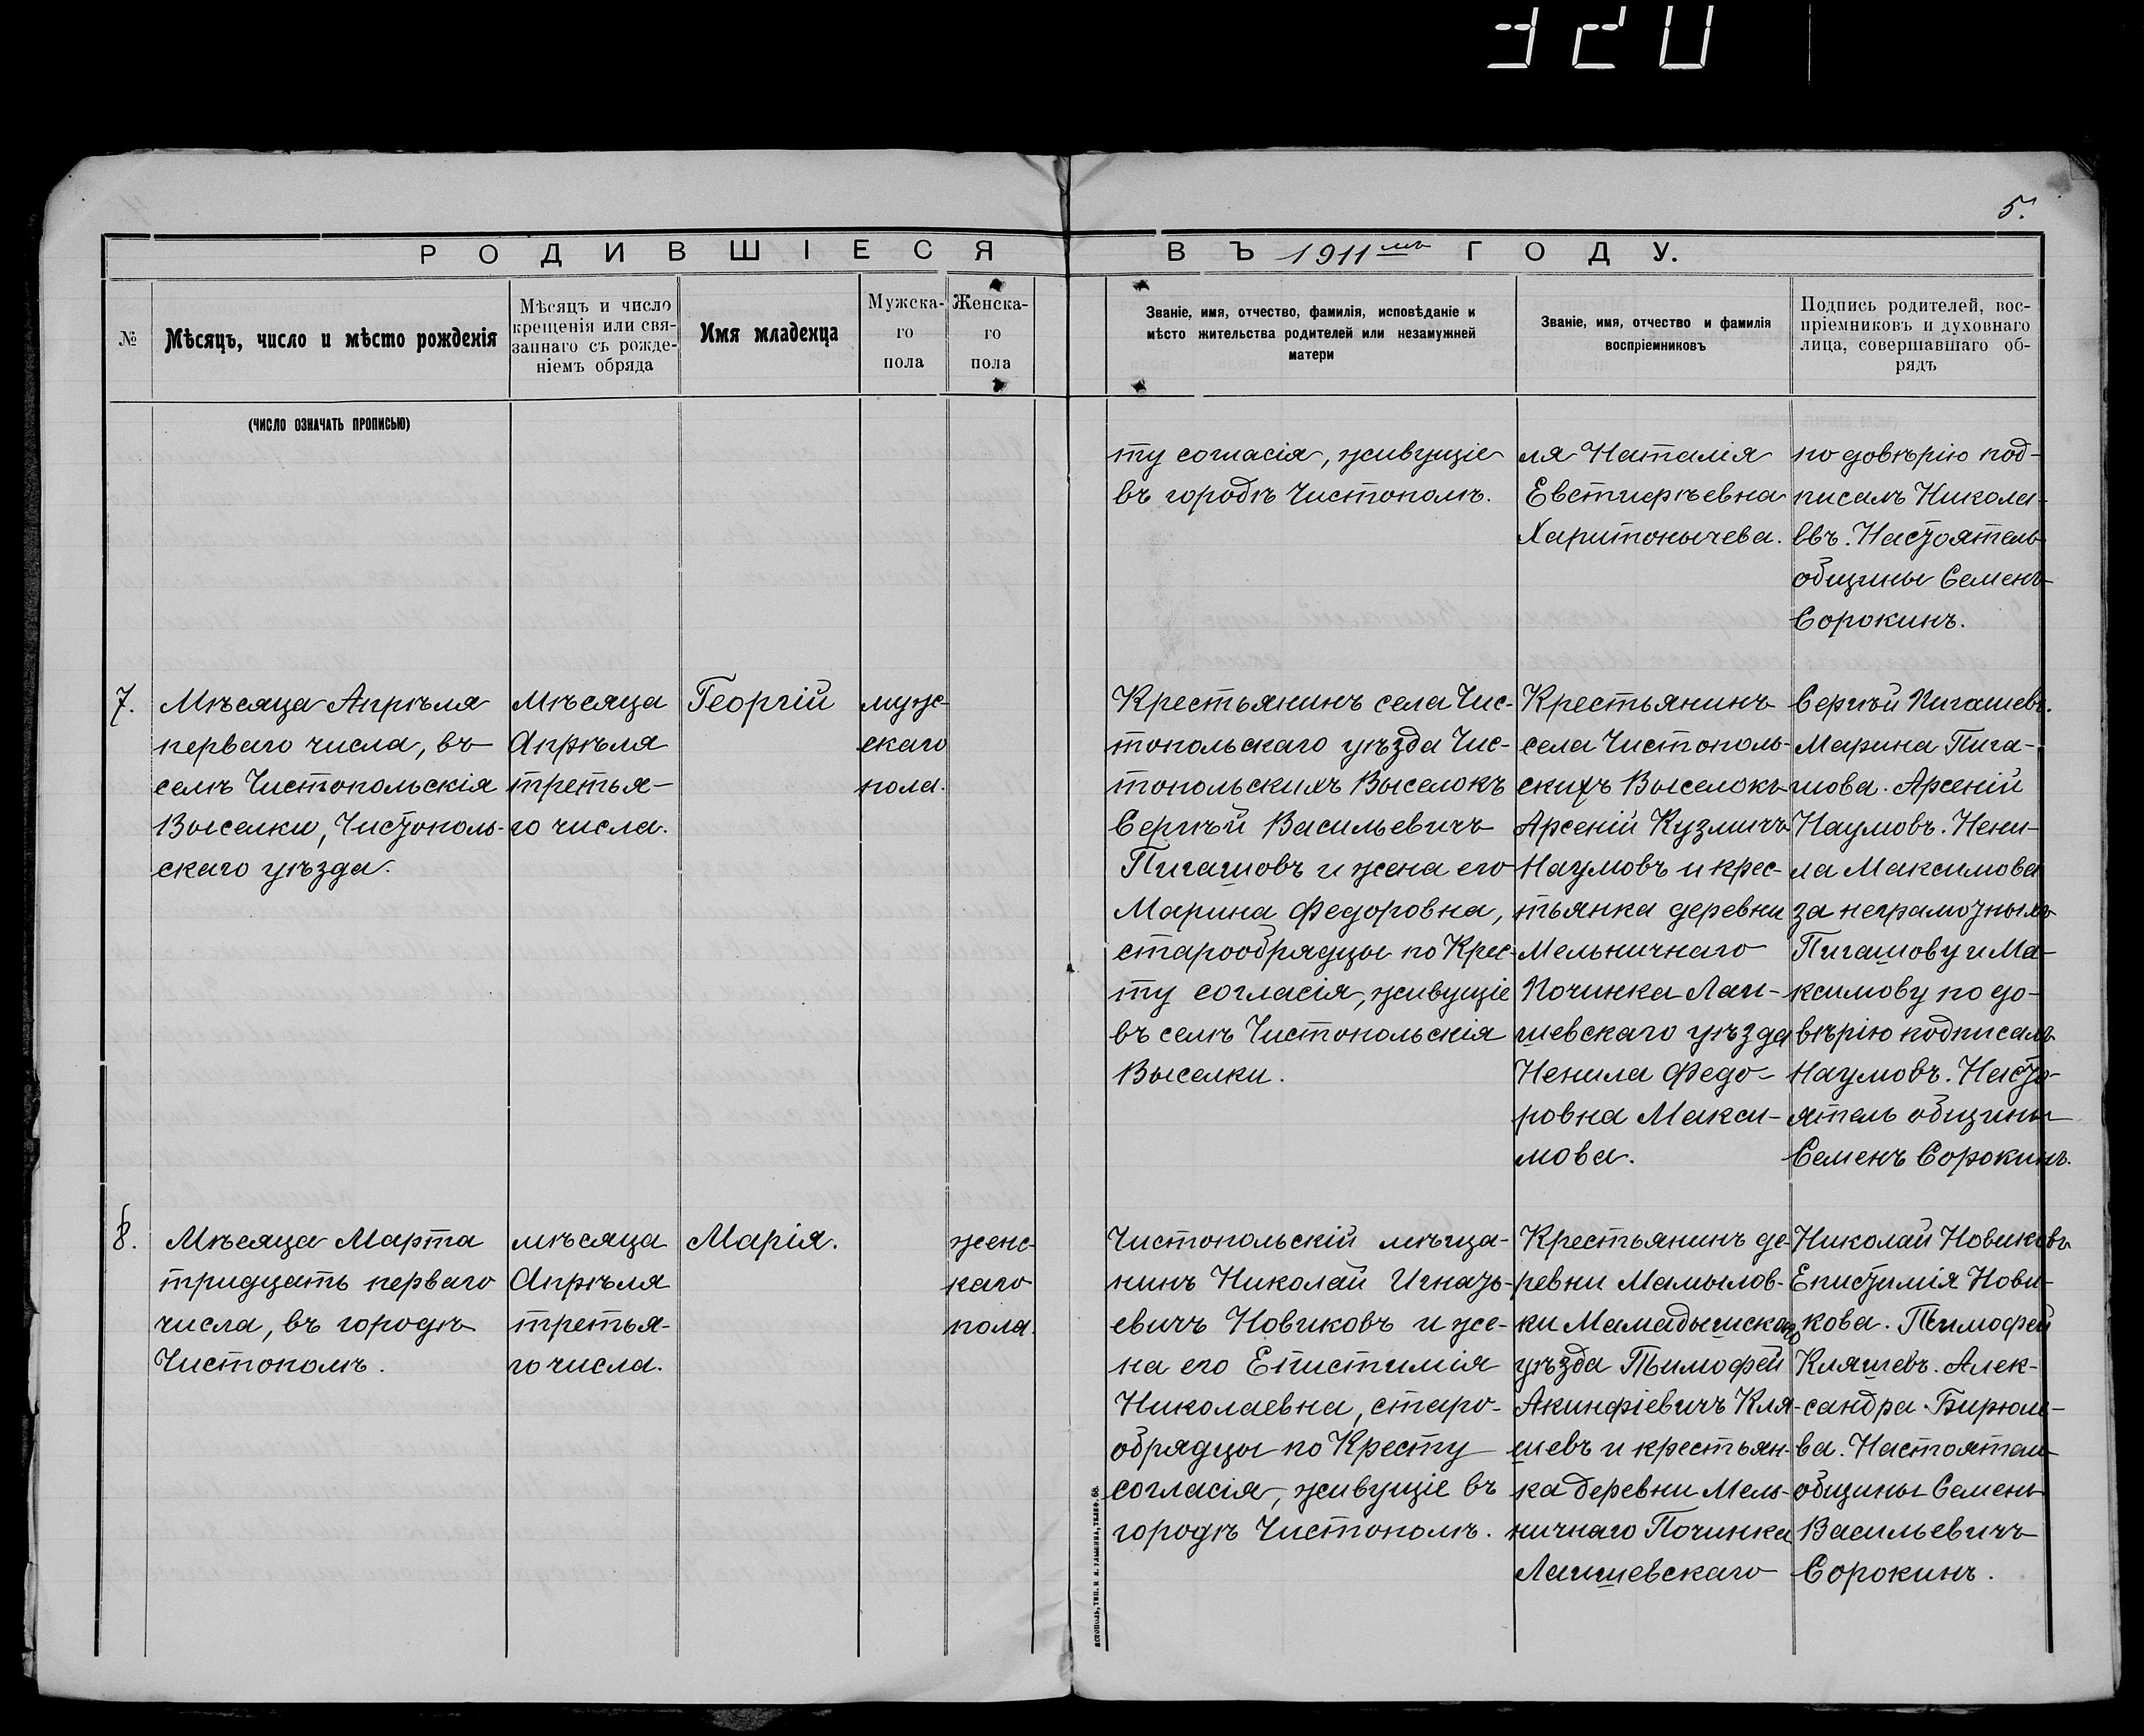 320
5.
РОДИВШІЕСЯ ВЪ 1911мъ ГОДУ.
№
Мѣсяцъ, число и мѣсто рожденія
Мѣсяцъ и число
крещенія или свя-
заннаго съ рожде-
ніемъ обряда
Имя младенца
Мужска-
го
пола
Женска-
го
пола
Званіе, имя, отчество, фамилія, исповѣданіе и
мѣсто жительства родителей или незамужней
матери
Званіе, имя, отчество и фамилія
воспріемниковъ
Подпись родителей, вос-
пріемниковъ и духовнаго
лица, совершавшаго об-
рядъ
(ЧИСЛО ОЗНАЧАТЬ ПРОПИСЬЮ)
ту согласія, живущіе
въ городѣ Чистополѣ.
ля Наталія
Евстифѣевна
Харитонычева.
по довѣрію под-
писалъ Никола-
евъ. Настоятель
общины Семенъ
Сорокинъ.
7.
Мѣсяца Апрѣля
перваго числа, въ
селѣ Чистопольскія
Выселки, Чистополь-
скаго уѣзда.
Мѣсяца
Апрѣля
третья-
го числа.
Георгій
муж-
скаго
пола.
Крестьянинъ села Чис-
топольскаго уѣзда Чис-
топольскихъ Выселокъ
Сергѣй Васильевичъ
Пигашовъ и жена его
Марина Федоровна,
старообрядцы по Крес-
ту согласія, живущіе
въ селѣ Чистопольскія
Выселки.
Крестьянинъ
села Чистополь-
скихъ Выселокъ
Арсеній Кузмичъ
Наумовъ и крес-
тьянка деревни
Мельничнаго
Починка Лаи-
шевскаго уѣзда
Ненила Федо-
ровна Макси-
мова.
Сергѣй Пигашевъ.
Марина Пига-
шова. Арсеній
Наумовъ. Нени-
ла Максимова
за неграмотныхъ
Пигашову и Ма-
ксимову по до-
вѣрію подписалъ
Наумовъ. Насто-
ятель общины
Семенъ Сорокинъ.
8.
Мѣсяца Марта
тридцать перваго
числа, въ городѣ
Чистополѣ.
мѣсяца
Апрѣля
третья-
го числа.
Марія.
женс-
каго
пола.
Чистопольскій мѣща-
нинъ Николай Игнать-
евичъ Новиковъ и же-
на его Епистимія
Николаевна, старо-
обрядцы по Кресту
согласія, живущіе въ
городѣ Чистополѣ.
Крестьянинъ де-
ревни Мамылов-
ки Мамадышскаго
уѣзда Тимофей
Акинфіевичъ Кля-
шевъ и крестьян-
ка деревни Мель-
ничнаго Починка
Лаишевскаго
Николай Новиковъ
Епистимія Нови-
кова. Тимофей
Кляшевъ. Алек-
сандра Бирюле-
ва. Настоятель
общины Семенъ
Васильевичъ
Сорокинъ.